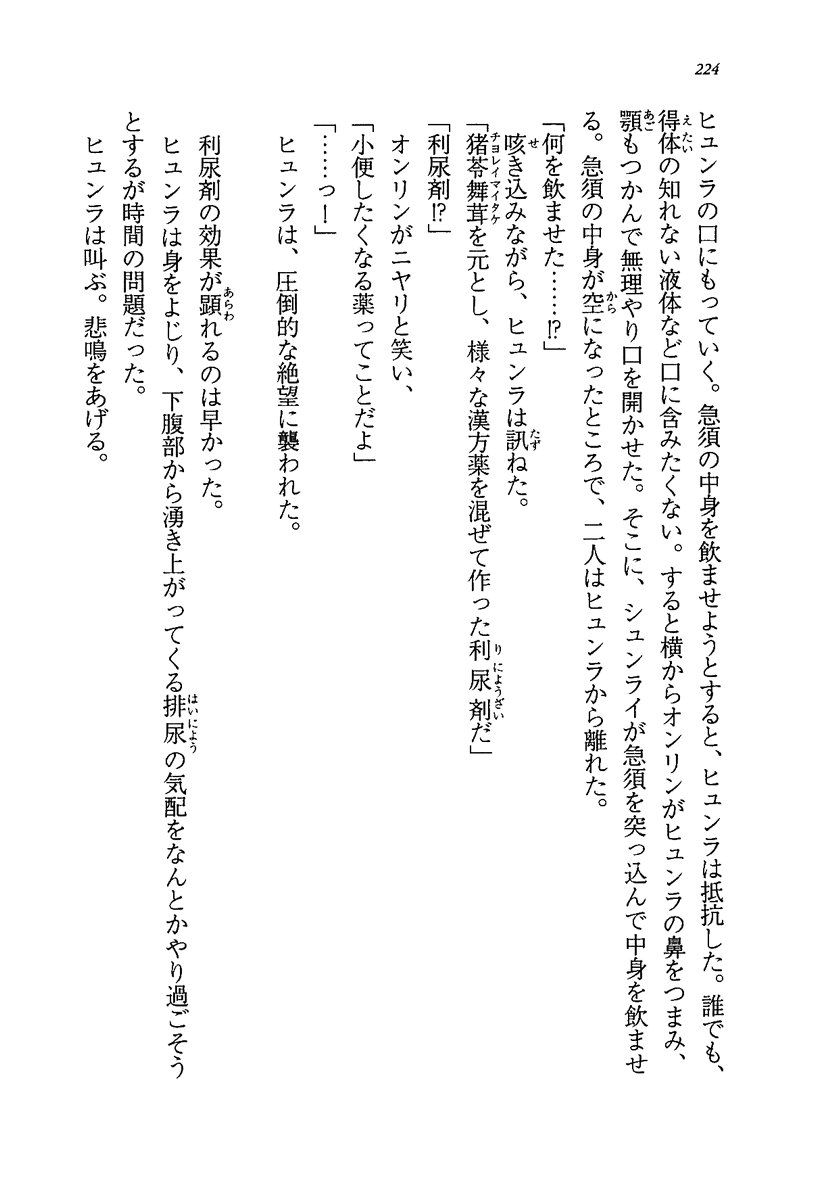 224
ヒュンラの口にもっていく。急須の中身を飲ませようとすると、ヒュンラは抵抗した。誰でも、
得体の知れない液体など口に含みたくない。すると横からオンリンがヒュンラの鼻をつまみ、
顎もつかんで無理やり口を開かせた。そこに、シュンライが急須を突っ込んで中身を飲ませ
る。急須の中身が空になったところで、二人はヒュンラから離れた。
「何を飲ませた……⁉」
咳き込みながら、ヒュンラは訊ねた。
「猪苓舞茸を元とし、様々な漢方薬を混ぜて作った利尿剤だ」
「利尿剤⁉」
オンリンがニヤリと笑い、
「小便したくなる薬ってことだよ」
「……っー」
ヒュンラは、圧倒的な絶望に襲われた。
利尿剤の効果が顕れるのは早かった。
ヒュンラは身をよじり、下腹部から湧き上がってくる排尿の気配をなんとかやり過ごそう
とするが時間の問題だった。
ヒュンラは叫ぶ。悲鳴をあげる。